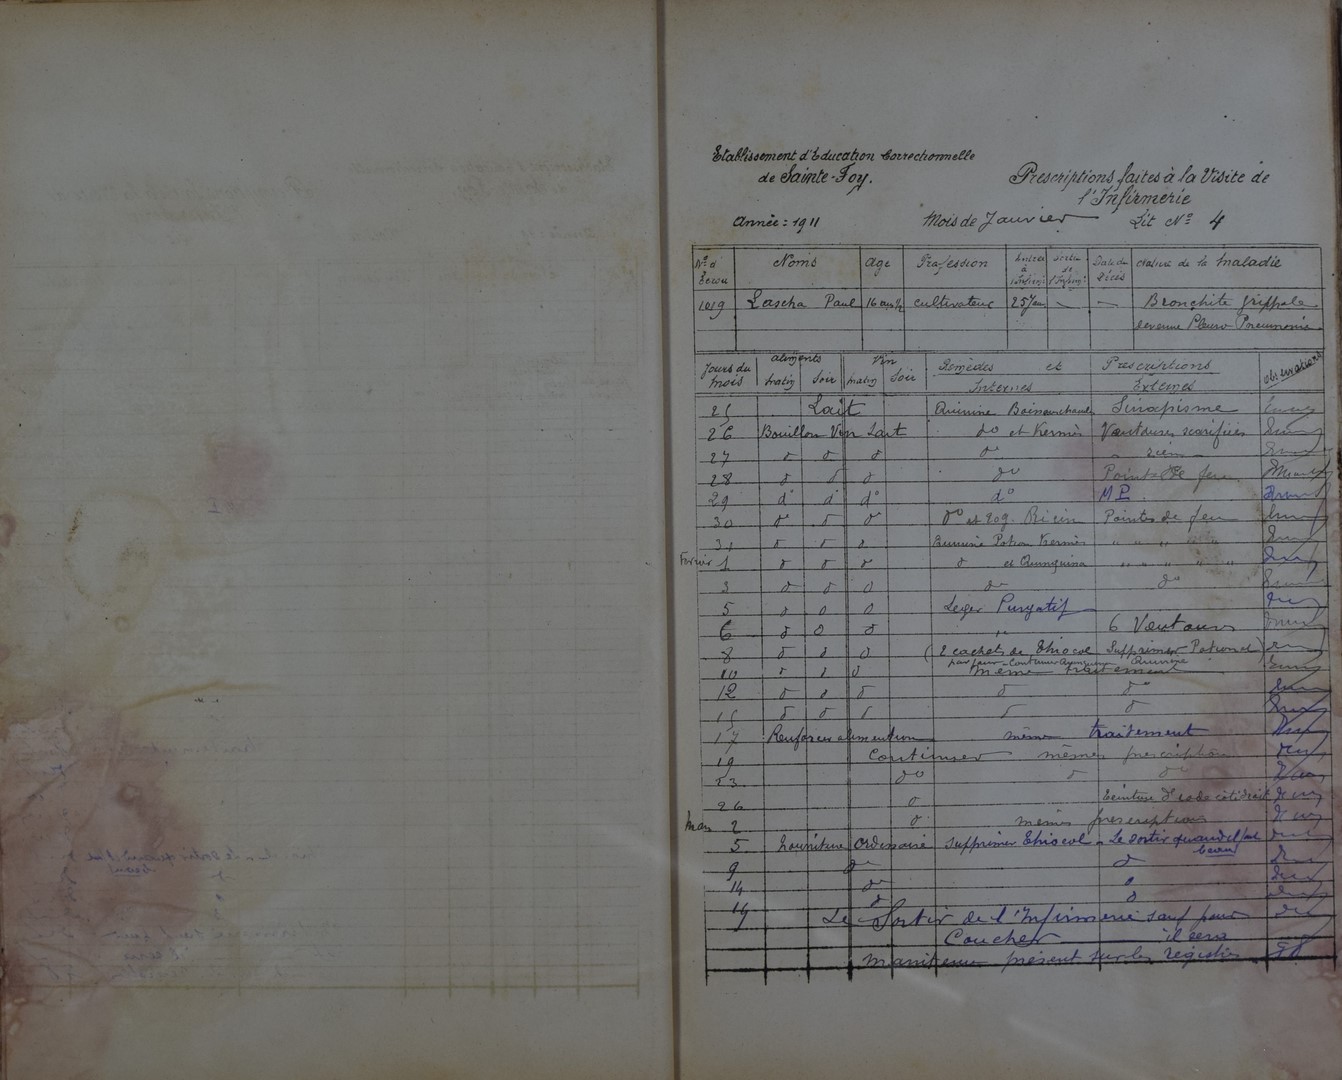 Etablissement d'Education Correctionnelle
de Sainte-Foy.
Prescriptions faites à la Visite de
l'Infirmerie
Année: 1911 Mois de Janvier Lit Nº 4
Nº d'Ecrou Noms Age Profession Entrée à l'Infirm. Sortie de l'Infirm. Date du Décès Nature de la Maladie
1019 Lascha Paul 16 ans ½ cultivateur 25 Jan — — Bronchite grippale
devenue Pleuro Pneumonie
Jours du mois Aliments Vin Remèdes et Prescriptions Observations
Matin Soir Matin Soir Internes Externes
25 Lait Quinine Sinapisme
26 Bouillon Vin Lait dº et Kermès Ventouses scarifiées
27 d d d dº rien
28 d d d dº Pointes de feu
29 dº dº dº dº
30 d d d dº et 20g. Ricin Pointes de feu
31 d d d Quinine Potion Kermès " " " " "
Fevrier 1 d d d d et Quinquina " " " " " "
3 d d d dº dº
5 d d d Leger Purgatif
6 d d d " 6 Ventouses
8 d d d (2 cachets de Thiocol Supprimer Potion
par jour Continuer Quinine
10 d d d même traitement
12 d d d d dº
15 d d d d d
17 Renforcer alimentation même traitement
19 Continuer mêmes prescriptions
23 dº d dº
26 d Teinture d'iode côté droit
Mars 2 d mêmes prescriptions
5 Nourriture Ordinaire supprimer Thiocol - Le sortir quand il fait
beau
9 dº d
14 dº d
d d
19 Le Sortir de l'Infirmerie sauf pour
Coucher il sera
maintenu présent sur les registres